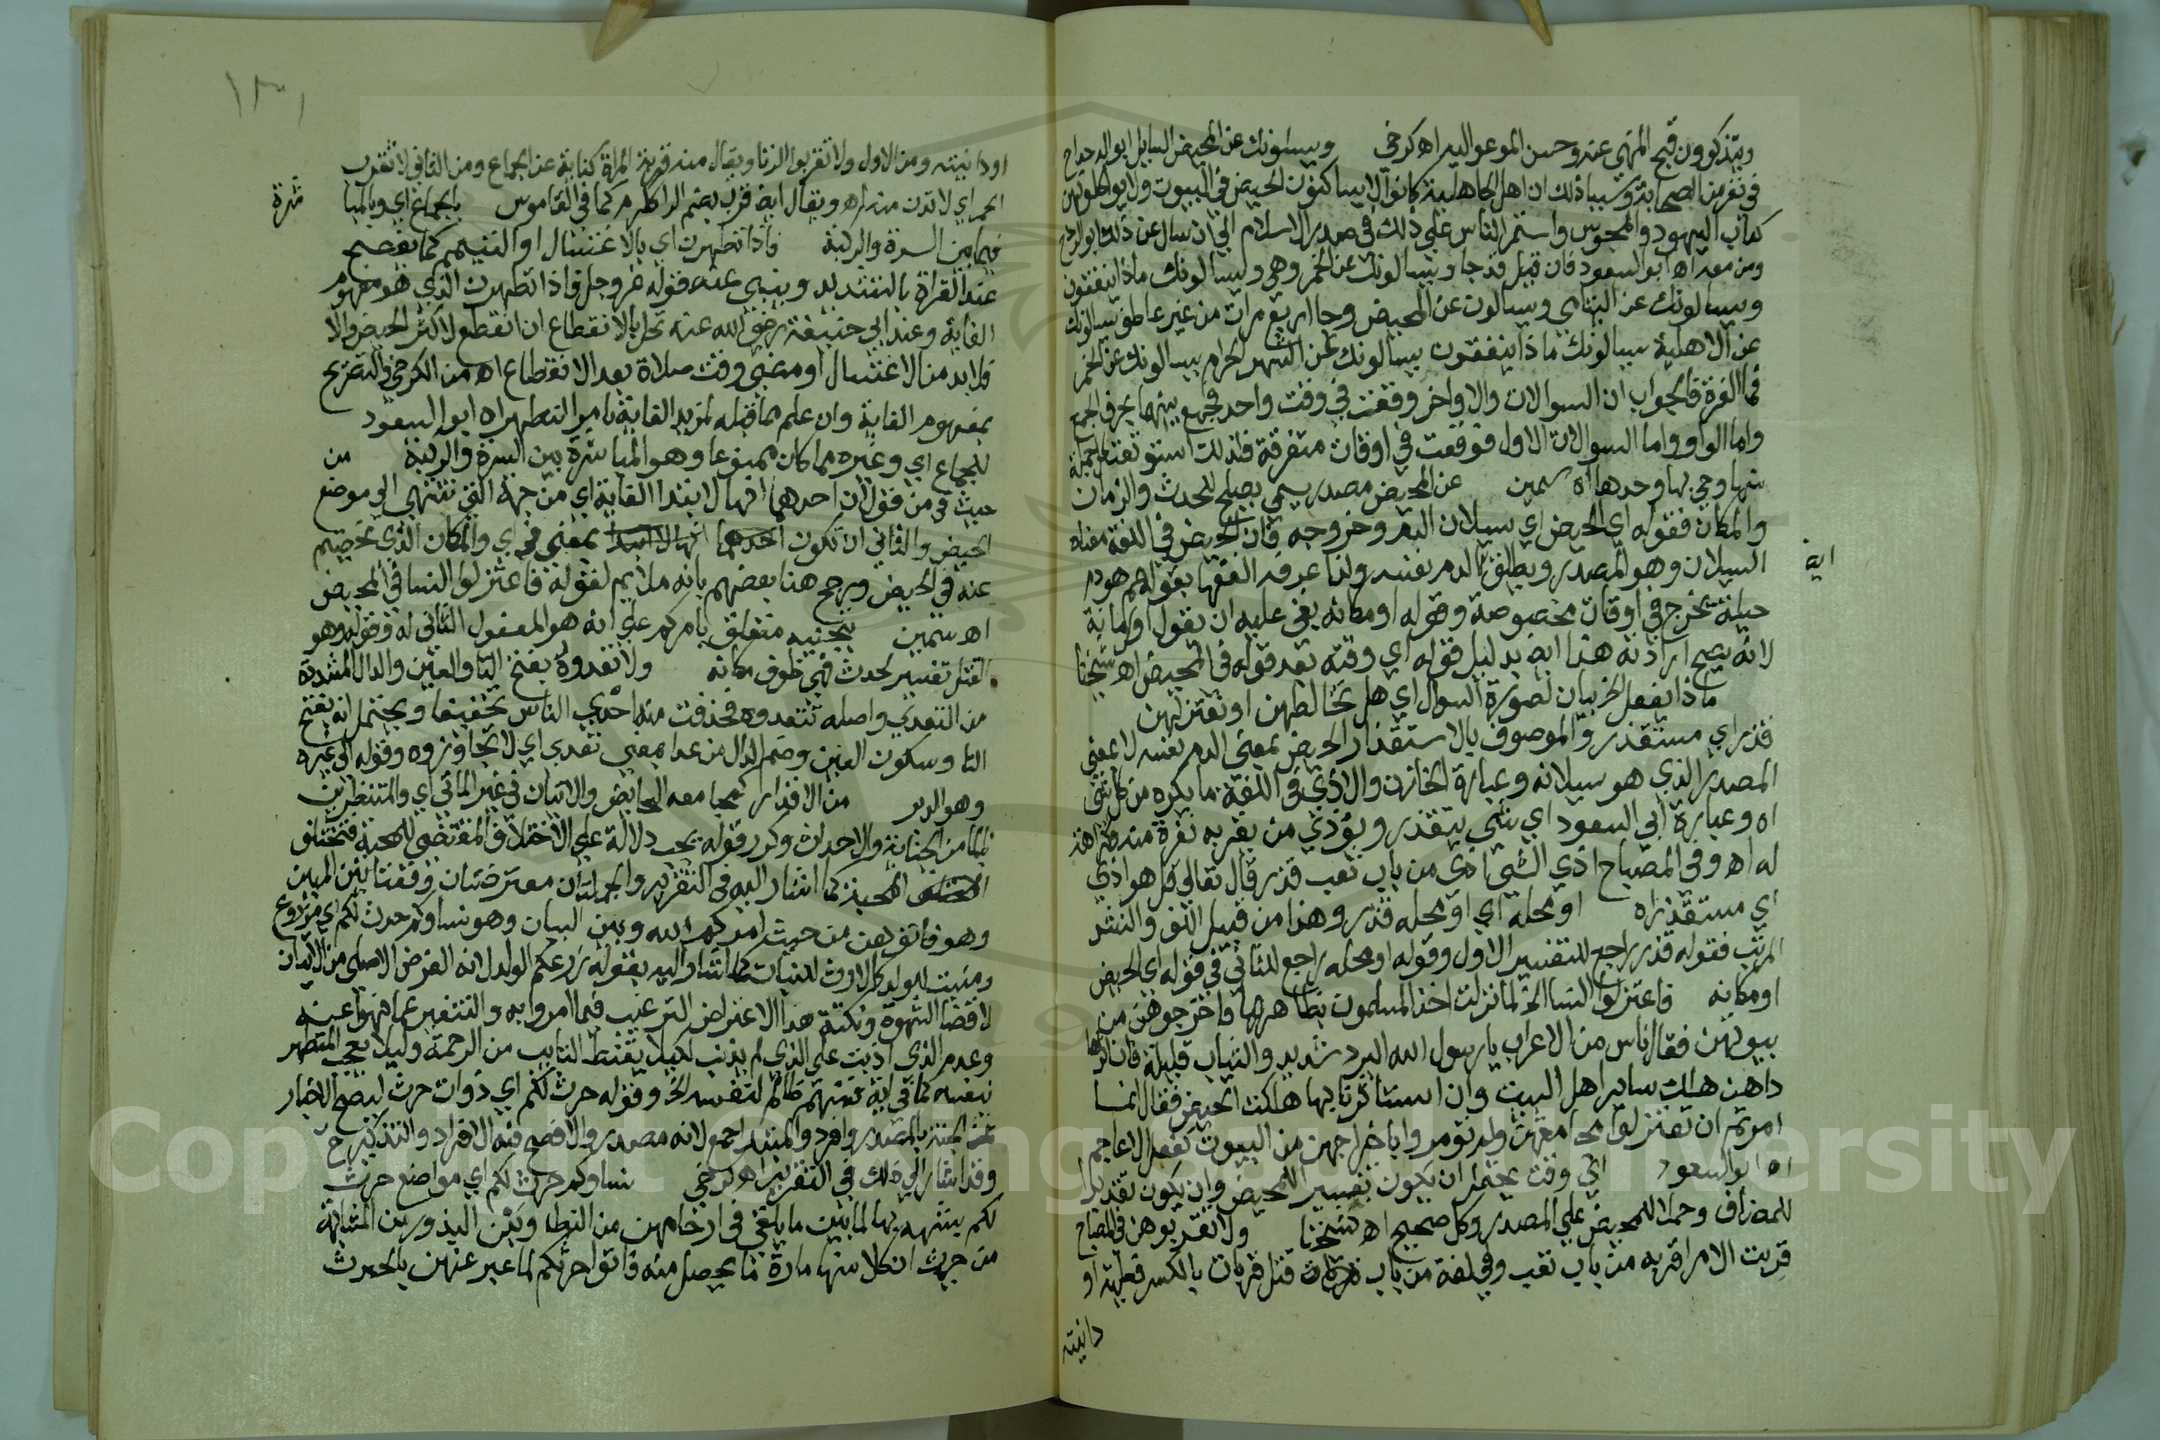 ويتذكرون قبح المنهي عنه وحسن الموعو اليه اه كرخي ويسئلونك عن المحيض السايل ابو الدحداح
في نفر من الصحابة وسبب ذلك ان اهل الجاهلية كانوا لا يساكنون الحيض في البيوت ولا يواكلونهن
كداب اليهود والمجوس واستمر الناس على ذلك في صدر الاسلام الي ان سال عن ذلك ابو الدحداح
ومن معه اه ابو السعود فان قيل قد جا ويسالونك عن الخمر وهي ويسالونك ماذا ينفقون
ويسالونك عن اليتامى ويسالونك عن المحيض وجا اربع مرات من غير عاطف يسالونك
عن الاهلة يسالونك ماذا ينفقون يسالونك عن الشهر الحرام يسالونك عن الخمر
فما الفرق فالجواب ان السوالات الاواخر وقعت في وقت واحد فجمع بينها بحرف الجمع
واما الواو واما السوالات الاول فوقعت في اوقات متفرقة فلذلك استونفت كل جملة
منها وجي بها وحدها اه سمين عن المحيض مصدر ميمي يصلح للحدث والزمان
والمكان فقوله اي الحيض اي سيلان الدم وخروجه فان الحيض في اللغة معناه
السيلان وهو المصدر ويطلق على الدم نفسه ولذا عرفه الفقها بقولهم هو دم
ايض
جبلة تخرج في اوقات مخصوصة وقوله او مكانه بقي عليه ان يقول او زمانه
لانه يصح ارادته هنا ايض بدليل قوله اي وقته بعد قوله في المحيض اه شيخنا
ماذا يفعل الخ بيان لصورة السوال اي هل نخالطهن او نعتزلهن
قذر اي مستقذر والموصوف بالاستقذار الحيض بمعنى الدم نفسه لا بمعنى
المصدر الذي هو سيلانه وعبارة الخازن والاذى في اللغة ما يكره من كل شي
اه وعبارة ابي السعود اي شي يستقذر ويوذي من يقربه نفرة منه وكراهة
له اه وفي المصباح اذي الشي اذى من باب تعب قذر قال تعالى قل هو اذى
اي مستقذر اه او محله اي او محله قذر وهذا من قبيل اللف والنشر
المرتب فقوله قذر راجع للتفسير الاول وقوله او محله راجع للثاني في قوله اي الحيض
او مكانه فاعتزلوا النسا الخ لما نزلت اخذ المسلمون بظاهرها فاخرجوهن من
بيوتهن فقال ناس من الاعراب يا رسول الله البرد شديد والثياب قليلة فان اثرنا
داهن هلك ساير اهل البيت وان استاثرنا بها هلكت الحيض فقال انما
امرتم ان تعتزلوا مجامعتهن ولم تومروا باخراجهن من البيوت كفعل الاعاجم
اه ابو السعود اي وقت يحتمل ان يكون تفسير للمحيض وان يكون تقديرا
للمضاف وحملا للمحيض على المصدر وكل صحيح اه شيخنا ولا تقربوهن في المصباح
قربت الامر اقربه من باب تعب وفي لغة من باب قتل قربانا بالكسر فعلته او
دانيته
١٣١
او دانيته ومن الاول ولا تقربوا الزنا ويقال منه قربت المراة كناية عن الجماع ومن الثاني لا تقرب
الحمى اي لا تدن منه اه ويقال ايض قرب بضم الرا ككرم كما في القاموس بالجماع اي وبالمبا
شرة
فيما بين السرة والركبة فاذا تطهرن اي بالاغتسال او التيمم كما تفصح
عنه القراة بالتشديد وينبي عنه قوله عز وجل فاذا تطهرن الذي هو مفهوم
الغاية وعند ابي حنيفة رضي الله عنه تحل بالانقطاع ان انقطع لاكثر الحيض والا
فلا بد من الاغتسال او مضي وقت صلاة بعد الانقطاع اه من الكرخي والتصريح
بمفهوم الغاية وان علم مما قبله لمزيد العناية بامر التطهر اه ابو السعود
للجماع اي وغيره مما كان ممنوعا وهو المباشرة بين السرة والركبة من
حيث في من قولان احدهما انها لابتدا الغاية اي من جهة التي تنتهي الي موضع
الحيض والثاني ان تكون بمعنى في اي والمكان الذي نهيتم
عنه في الحيض ورجح هذا بعضهم بانه ملايم لقوله فاعتزلوا النسا في المحيض
اه سمين بتجنبه متعلق بامركم على انه هو المفعول الثاني له وقوله وهو
القبل تفسير لحيث فهي ظرف مكانه ولا تعدوه بفتح التا والعين والدال المشددة
من التعدي واصله تتعدوه فحذفت منه احدى التاين تخفيفا ويحتمل انه بفتح
التا وسكون العين وضم الدال من عدا بمعنى تعدى اي لا تجاوزوه وقوله الى غيره
وهو الدبر من الاقذار كمجامعة الحايض والاتيان في غير الماتي اي والمتنظرين
بالما من الجنابة والاحداث وكرر قوله يحب دلالة على الاختلاف المقتضي للمحبة فتختلف
المحبة كما اشار اليه في التقرير والجملتان معترضتان وقعتا بين المبين
وهو فاتوهن من حيث امركم الله وبين البيان وهو نساوكم حرث لكم اي مزروع
ومنبت للولد كالارض للنبات كما اشار اليه بقوله زرعكم الولد لانه الغرض الاصلي من الاتيان
لا قضا الشهوة ونكتة هذا الاعتراض الترغيب فيما امروا به والتنفير عما نهوا عنه
وقدم الذي اذنب على الذي لم يذنب لكيلا يقنط التايب من الرحمة وليلا يعجب المتطهر
بنفسه كما في اية فمنهم ظالم لنفسه الخ وقوله حرث لكم اي ذوات حرث ليصح الاخبار
عن الجثة بالمصدر وافرد والمبتدا جمع لانه مصدر والافصح فيه الافراد والتذكير ح
وقد اشار الى ذلك في التقرير اه كرخي نساوكم حرث لكم اي مواضع حرث
لكم شبههن بها لما بين ما يلقى في ارحامهن من النطف وبين البذور من المشابهة
من حيث ان كلا منهما مادة لما يحصل منه فاتوا حرثكم لما عبر عنهن بالحرث
Copyright © King Saud University